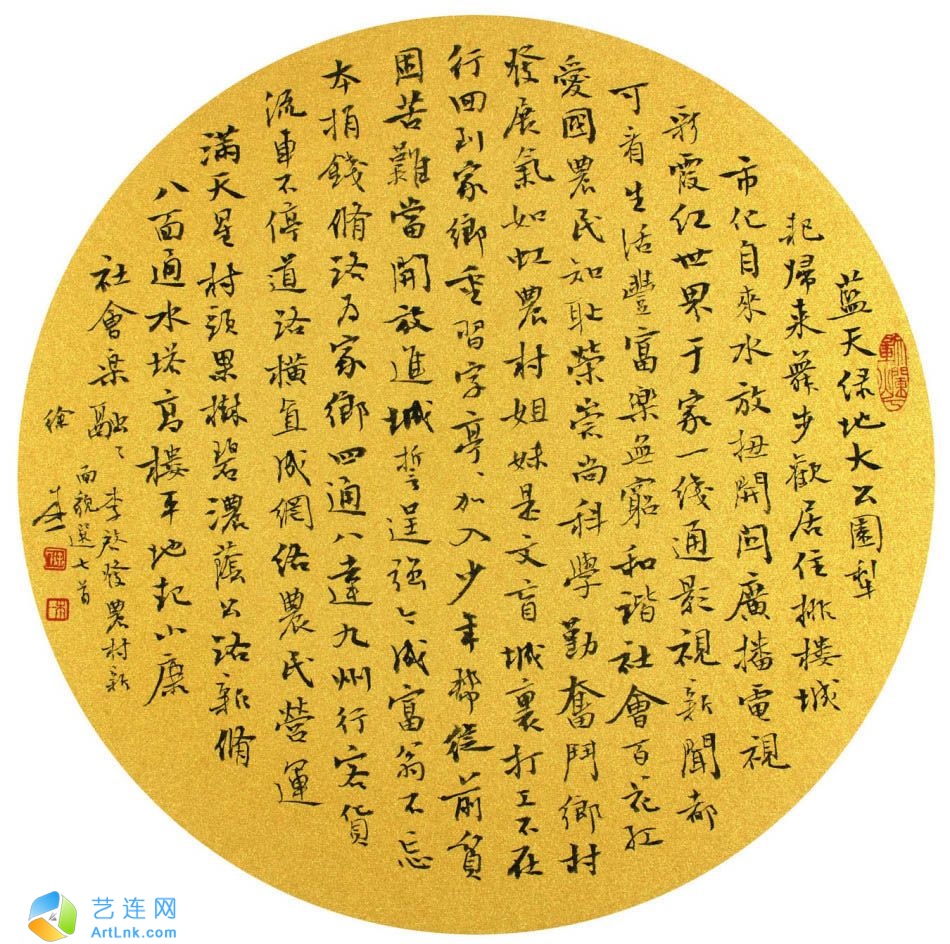 蓝天绿地大公園犁
耙歸来舞步歡居住排楼城
市化自来水放扭開闊廣播電視
彩霞红世界于家一线通影視新聞都
可看生活豐富樂無窮和谐社會百花红
愛國農民知耻榮崇尚科學勤奮鬥鄉村
發展氣如虹農村姐妹是文盲城裏打工不在
行回到家鄉重習字亭亭加入少年幫從前貧
困苦難當開放進城誓逞强强成富翁不忘
本捐錢脩路为家鄉四通八達九州行客貨
流車不停道路横直成網络農民營運
滿天星村頭果樹碧濃蔭公路新脩
八面通水塔高樓平地起小康
社會樂融融
李啟發農村新
面貌選七首
徐
艺连网
ArtLnk.com